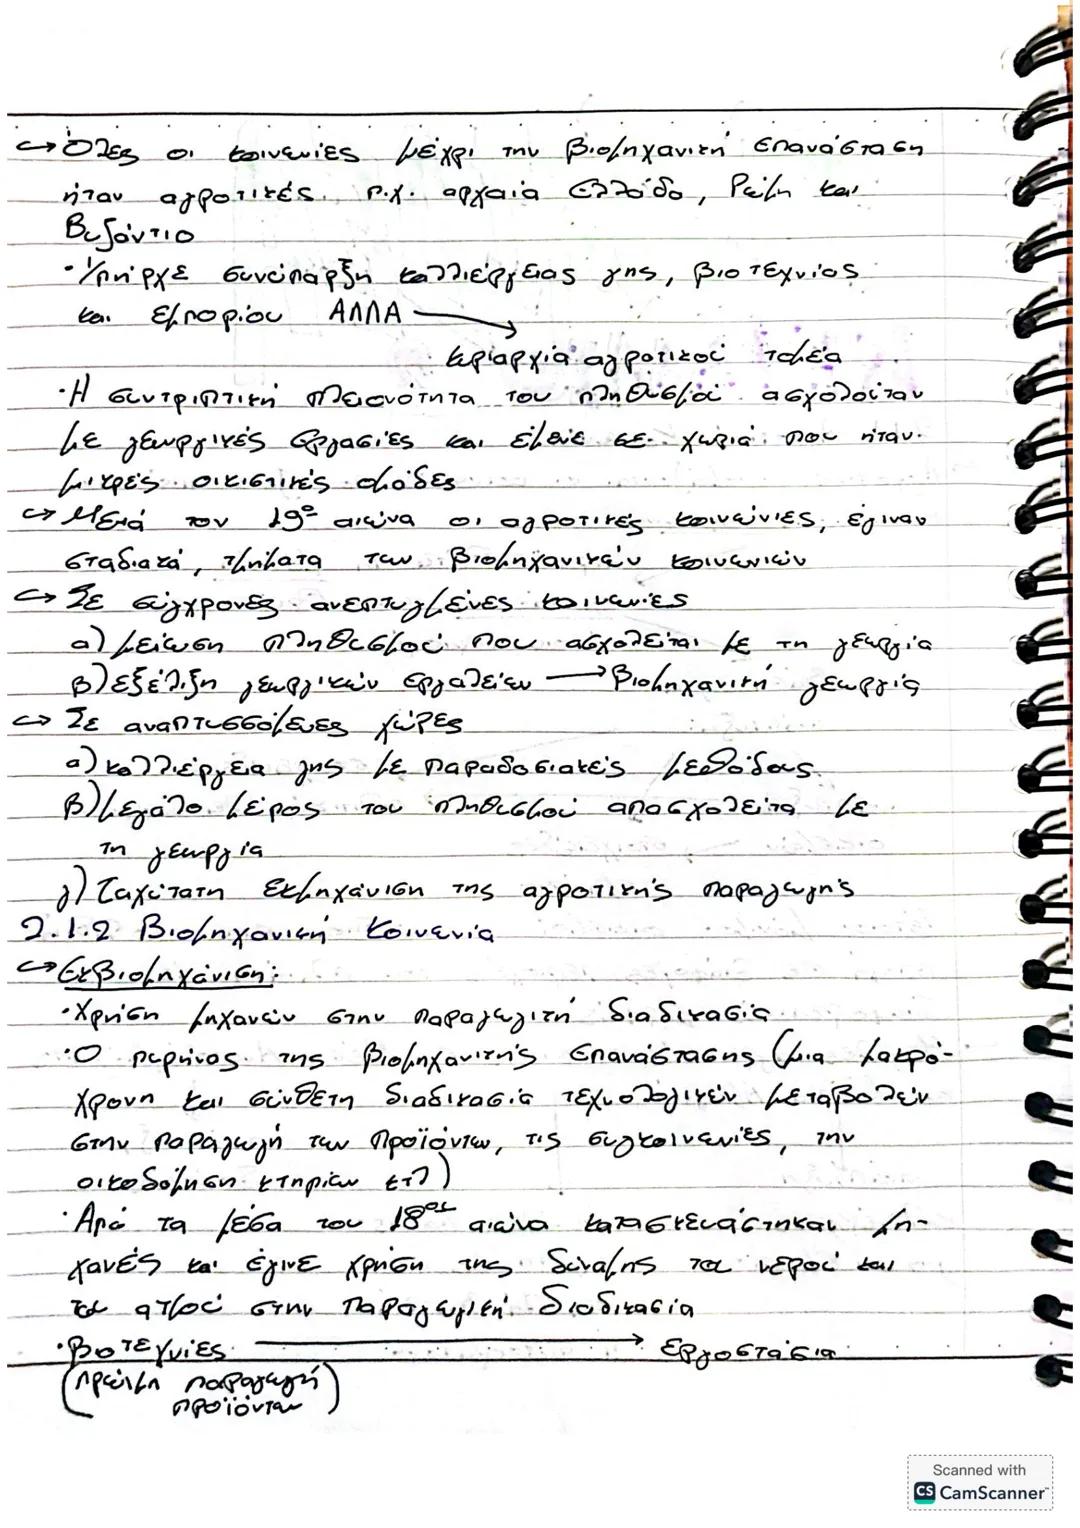 ↪ Όλες οι κοινωνίες μέχρι την βιομηχανική επανάσταση
ήταν αγροτικές. π.χ. αρχαία Ελλάδα, Ρώμη και
Βυζάντιο
·Υπήρχε συνύπαρξη καλλιέργειας γης, βιοτεχνίας
και εμπορίου ΑΛΛΑ →
κυριαρχία αγροτικού τομέα
·Η συντριπτική πλειονότητα του πληθυσμού ασχολούταν
με γεωργικές εργασίες και έμενε σε χωριά που ήταν
μικρές οικιστικές ομάδες
↪ Μετά τον 19º αιώνα οι αγροτικές κοινωνίες, έγιναν
σταδιακά, τμήματα των βιομηχανικών κοινωνιών
↪ Σε σύγχρονες ανεπτυγμένες κοινωνίες
α) μείωση πληθυσμού που ασχολείται με τη γεωργία
β) εξέλιξη γεωργικών εργαλείων → Βιομηχανική γεωργία
↪ Σε αναπτυσσόμενες χώρες
α) καλλιέργεια γης με παραδοσιακές μεθόδους
β) μεγάλο μέρος του πληθυσμού απασχολείτα με
τη γεωργία
γ) Ταχύτατη εκμηχάνιση της αγροτικής παραγωγής
2.1.2 Βιομηχανική Κοινωνία
↪ Εκβιομηχάνιση:
·Χρήση μηχανών στην παραγωγική διαδικασία
·Ο πυρήνας της βιομηχανικής επανάστασης (μια μακρό-
χρονη και σύνθετη διαδικασία τεχνολογικών μεταβολών
στην παραγωγή των προϊόντων, τις συγκοινωνίες, την
οικοδόμηση κτηρίων κτλ)
·Από τα μέσα του 18ου αιώνα κατασκευάστηκαν μη-
χανές και έγινε χρήση της δύναμης του νερού και
του ατμού στην παραγωγική διαδικασία
·Βιοτεχνίες → εργοστάσια
(πρώιμη παραγωγή
προϊόντων)
Scanned with
CS CamScanner